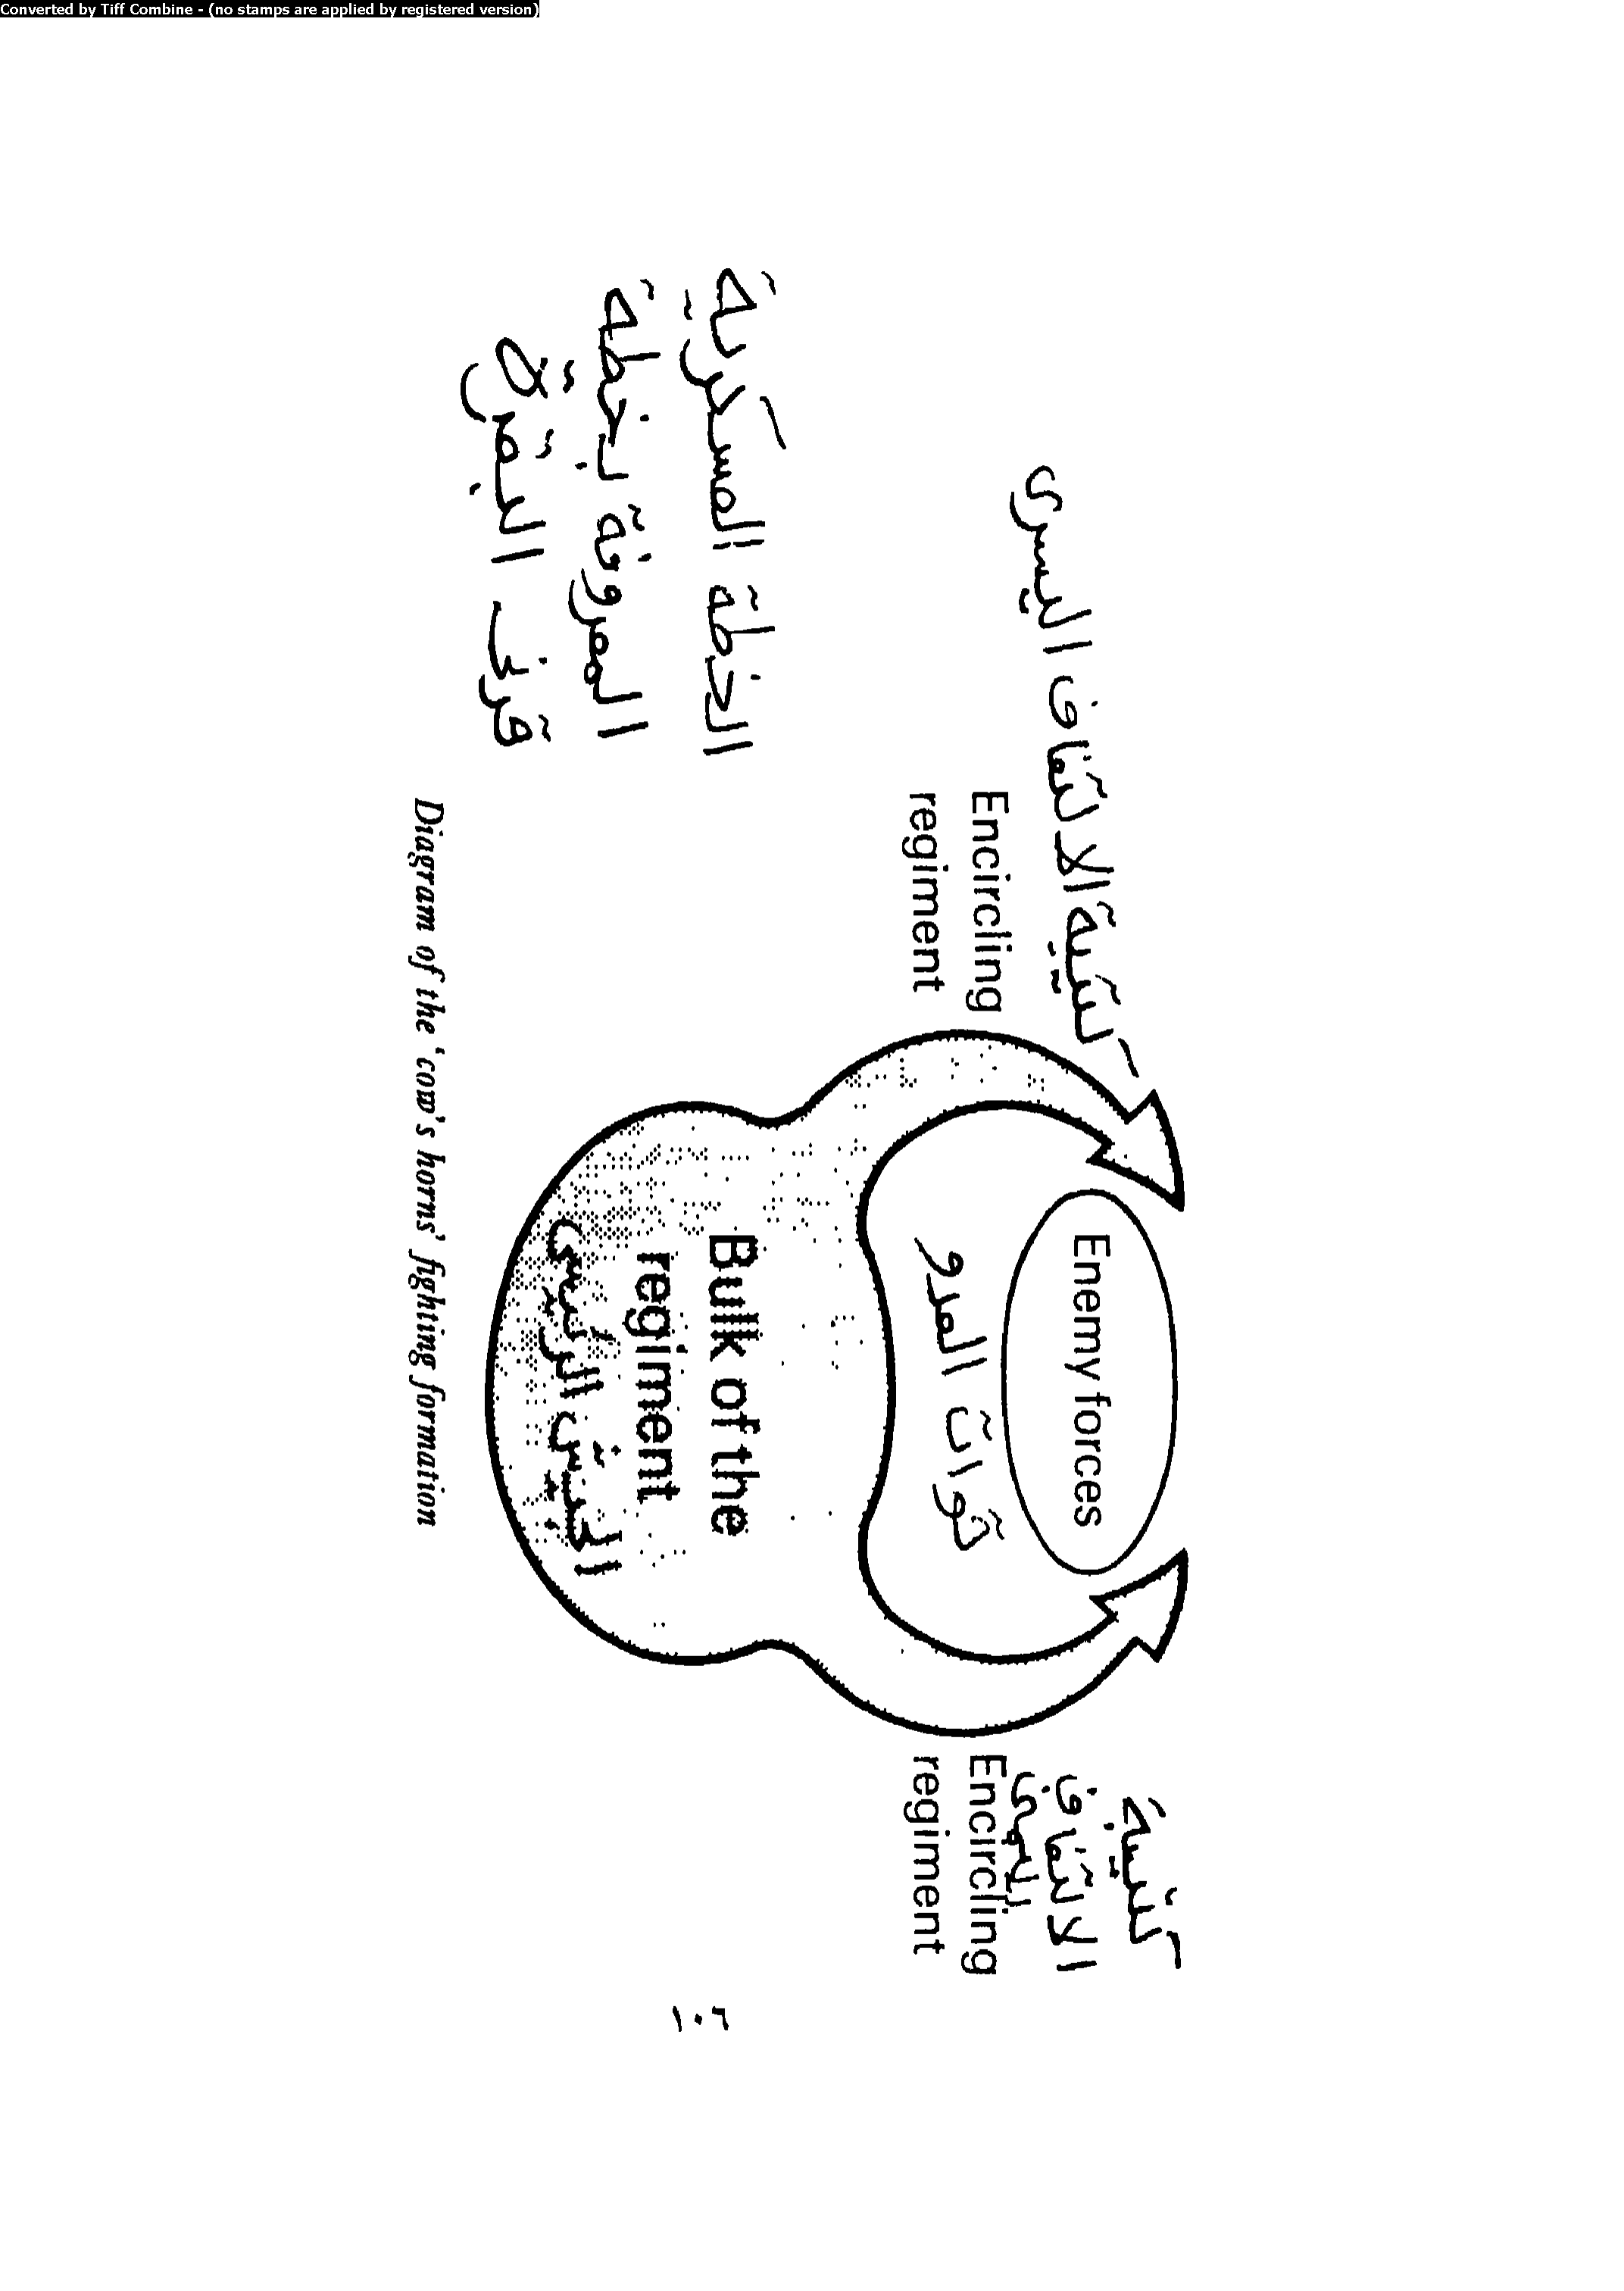 Converted by Tiff Combine - (no stamps are applied by registered version)
كتيبة الالتفاف اليسرى
Encircling
regiment
Enemy forces
قوات العدو
كتيبة
الالتفاف
اليمنى
Encircling
regiment
Bulk of the
regiment
الجيش الرئيسى
الخطة العسكرية
المعروفة بخطة
قرنى البقرة
Diagram of the ‘cow’s horns’ fighting formation
١٠٦